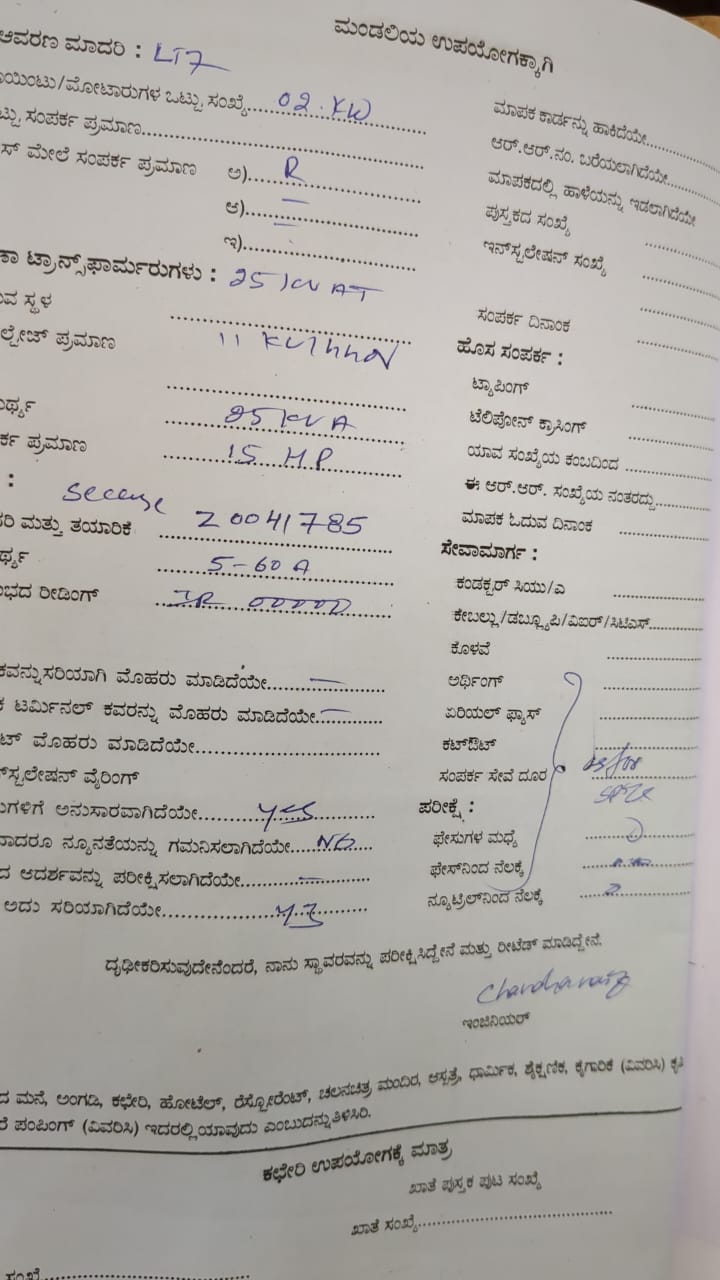 ಮಂಡಲಿಯ ಉಪಯೋಗಕ್ಕಾಗಿ
ಆವರಣ ಮಾದರಿ : LT7
ಾಯಿಂಟು/ಮೋಟಾರುಗಳ ಒಟ್ಟು ಸಂಖ್ಯೆ.....02.KW
ಟ್ಟು ಸಂಪರ್ಕ ಪ್ರಮಾಣ.....
ಸ್ ಮೇಲೆ ಸಂಪರ್ಕ ಪ್ರಮಾಣ ಅ).....R
ಆ).....—
ಇ).....—
ಕಾ ಟ್ರಾನ್ಸ್‌ಫಾರ್ಮರುಗಳು : 25 KVA
ವ ಸ್ಥಳ
ಲ್ಟೇಜ್ ಪ್ರಮಾಣ 11 KV
ರ್ಥ್ಯ 25 KVA
ರ್ಕ ಪ್ರಮಾಣ 15 HP
:
ರಿ ಮತ್ತು ತಯಾರಿಕೆ Z0041785
ರ್ಥ್ಯ 5-60A
ಭದ ರೀಡಿಂಗ್ IR 00000
ಕವನ್ನುಸರಿಯಾಗಿ ಮೊಹರು ಮಾಡಿದೆಯೇ.....—
ಕ ಟರ್ಮಿನಲ್ ಕವರನ್ನು ಮೊಹರು ಮಾಡಿದೆಯೇ.....—
ಟ್ ಮೊಹರು ಮಾಡಿದೆಯೇ.....
ಸ್ಟಲೇಷನ್ ವೈರಿಂಗ್
ುಗಳಿಗೆ ಅನುಸಾರವಾಗಿದೆಯೇ.....yes
ಾದರೂ ನ್ಯೂನತೆಯನ್ನು ಗಮನಿಸಲಾಗಿದೆಯೇ.....NO
ದ ಆದರ್ಶವನ್ನು ಪರೀಕ್ಷಿಸಲಾಗಿದೆಯೇ.....—
ಅದು ಸರಿಯಾಗಿದೆಯೇ.....
ಮಾಪಕ ಕಾರ್ಡನ್ನು ಹಾಕಿದೆಯೇ.....
ಆರ್.ಆರ್.ನಂ. ಬರೆಯಲಾಗಿದೆಯೇ.....
ಮಾಪಕದಲ್ಲಿ ಹಾಳೆಯನ್ನು ಇಡಲಾಗಿದೆಯೇ
ಪುಸ್ತಕದ ಸಂಖ್ಯೆ
ಇನ್‌ಸ್ಟಲೇಷನ್ ಸಂಖ್ಯೆ
ಸಂಪರ್ಕ ದಿನಾಂಕ
ಹೊಸ ಸಂಪರ್ಕ :
ಟ್ಯಾಪಿಂಗ್
ಟೆಲಿಪೋನ್ ಕ್ರಾಸಿಂಗ್
ಯಾವ ಸಂಖ್ಯೆಯ ಕಂಬದಿಂದ
ಈ ಆರ್.ಆರ್. ಸಂಖ್ಯೆಯ ನಂತರದ್ದು.....
ಮಾಪಕ ಓದುವ ದಿನಾಂಕ
ಸೇವಾಮಾರ್ಗ :
ಕಂಡಕ್ಟರ್ ಸಿಯು/ಎ
ಕೇಬಲ್ಲು/ಡಬ್ಲ್ಯೂಪಿ/ವಿಐರ್/ಸಿಟಿಎಸ್.....
ಕೊಳವೆ
ಅರ್ಥಿಂಗ್
ಏರಿಯಲ್ ಫ್ಯಾಸ್
ಕಟ್‌ಔಟ್
ಸಂಪರ್ಕ ಸೇವೆ ದೂರ
ಪರೀಕ್ಷೆ :
ಫೇಸುಗಳ ಮಧ್ಯೆ
ಫೇಸ್‌ನಿಂದ ನೆಲಕ್ಕೆ
ನ್ಯೂಟ್ರಿಲ್‌ನಿಂದ ನೆಲಕ್ಕೆ
ದೃಢೀಕರಿಸುವುದೇನೆಂದರೆ, ನಾನು ಸ್ಥಾವರವನ್ನು ಪರೀಕ್ಷಿಸಿದ್ದೇನೆ ಮತ್ತು ರೀಟೆಡ್ ಮಾಡಿದ್ದೇನೆ.
ಇಂಜಿನಿಯರ್
ದ ಮನೆ, ಅಂಗಡಿ, ಕಛೇರಿ, ಹೋಟೆಲ್, ರೆಸ್ಟೋರೆಂಟ್, ಚಲನಚಿತ್ರ ಮಂದಿರ, ಆಸ್ಪತ್ರೆ, ಧಾರ್ಮಿಕ, ಶೈಕ್ಷಣಿಕ, ಕೈಗಾರಿಕೆ (ವಿವರಿಸಿ) ಕೃಷಿ
ರೆ ಪಂಪಿಂಗ್ (ವಿವರಿಸಿ) ಇದರಲ್ಲಿ ಯಾವುದು ಎಂಬುದನ್ನುತಿಳಿಸಿರಿ.
ಕಛೇರಿ ಉಪಯೋಗಕ್ಕೆ ಮಾತ್ರ
ಖಾತೆ ಪುಸ್ತಕ ಪುಟ ಸಂಖ್ಯೆ
ಖಾತೆ ಸಂಖ್ಯೆ.....
ಸಂಖ್ಯೆ.....